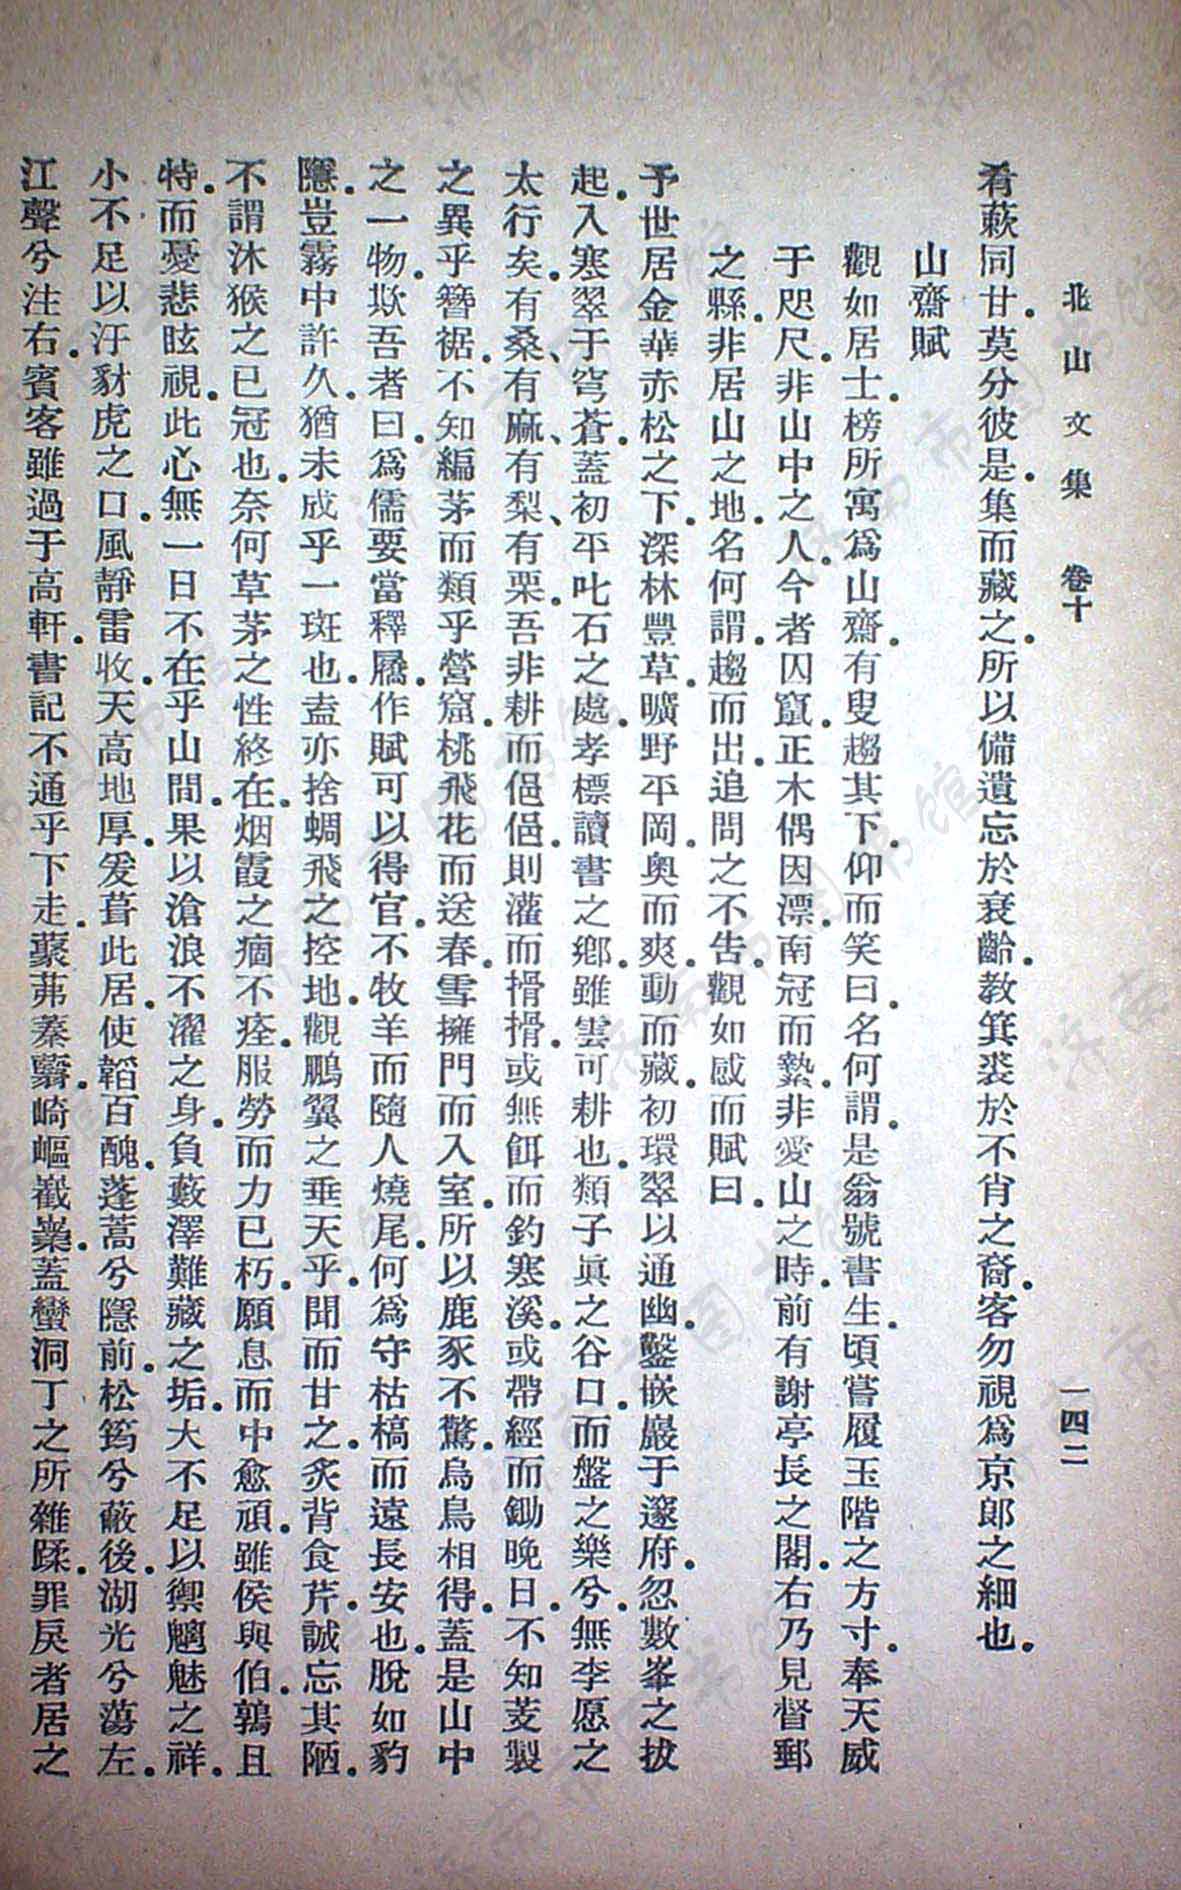 北山文集　卷十　一四二
肴蔌同甘。莫分彼是。集而藏之。所以備遺忘於衰齡。教箕裘於不肖之裔。客勿視爲京郎之細也。
山齋賦
觀如居士。榜所寓爲山齋。有叟趨其下。仰而笑曰。名何謂。是翁號書生。頃嘗履玉階之方寸。奉天威
于咫尺。非山中之人。今者囚竄。正木偶因漂。南冠而縶。非愛山之時。前有謝亭長之閣。右乃見督郵
之縣。非居山之地。名何謂。趨而出。追問之不告。觀如感而賦曰。
予世居金華赤松之下。深林豐草。曠野平岡。奧而爽。動而藏。初環翠以通幽。鑿嵌巖于邃府。忽數峯之拔
起。入寒翠于穹蒼。蓋初平叱石之處。孝標讀書之鄉。雖雲可耕也。類子眞之谷口。而盤之樂兮。無李愿之
太行矣。有桑、有麻、有梨、有栗。吾非耕而俋俋。則灌而搰搰。或無餌而釣寒溪。或帶經而鋤晚日。不知芰製
之異乎簪裾。不知編茅而類乎營窟。桃飛花而送春。雪擁門而入室。所以鹿豕不驚。烏鳥相得。蓋是山中
之一物。欺吾者曰。爲儒要當釋屩。作賦可以得官。不牧羊而隨人燒尾。何爲守枯槁而遠長安也。脫如豹
隱。豈霧中許久。猶未成乎一斑也。盍亦捨蜩飛之控地。觀鵬翼之垂天乎。聞而甘之。炙背食芹。誠忘其陋。
不謂沐猴之已冠也。奈何草茅之性終在。烟霞之痼不痊。服勞而力已朽。願息而中愈頑。雖侯與伯。鶉且
特。而憂悲眩視。此心無一日不在乎山間。果以滄浪不濯之身。負藪澤難藏之垢。大不足以禦魑魅之祥。
小不足以汙豺虎之口。風靜雷收。天高地厚。爰葺此居。使韜百醜。蓬蒿兮隱前。松筠兮蔽後。湖光兮蕩左。
江聲兮注右。賓客雖過于高軒。書記不通乎下走。蒙茀蓁翳。崎嶇巀嶪。蓋蠻洞丁之所雜蹂。罪戾者居之